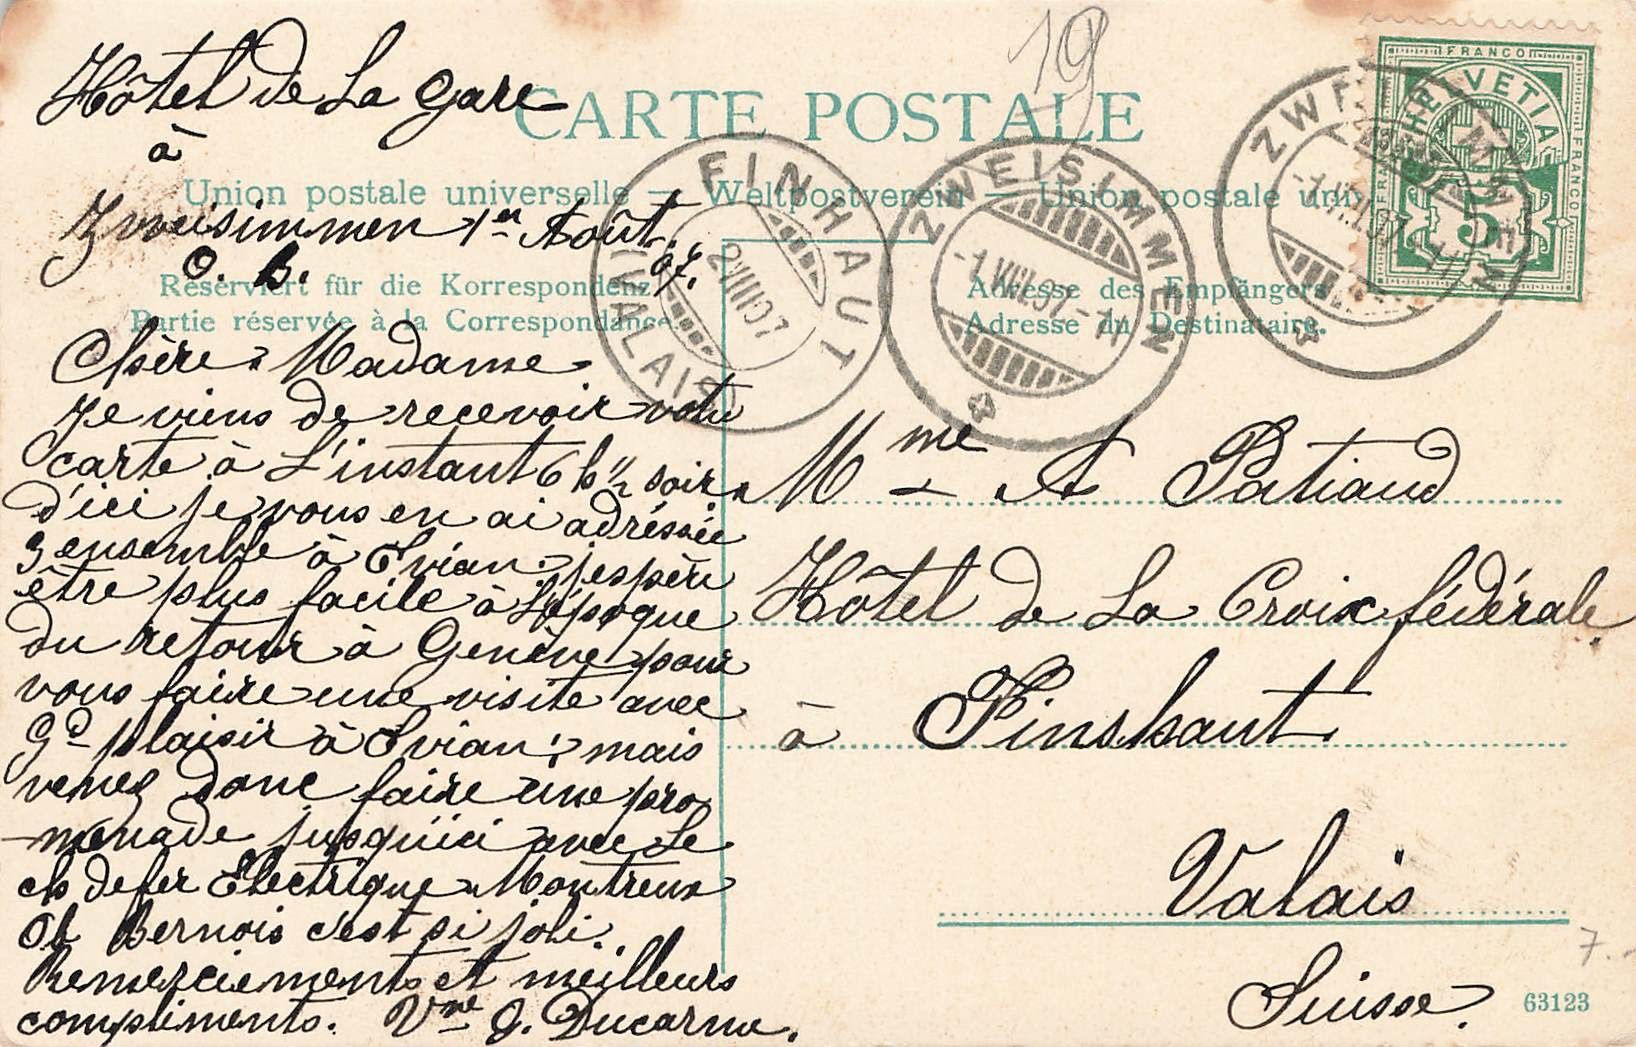 Hôtel de La Gare
à
Zweisimmen 1er Août.
O. B. 07.
CARTE POSTALE
19
Union postale universelle — Weltpostverein — Union postale uni
Reserviert für die Korrespondenz
Partie réservée à la Correspondance
Adresse des Empfängers
Adresse du Destinataire.
FINHAUT
2 VIII 07
(VALAIS)
ZWEISIMMEN
-1.VIII.07.-11
ZWEISIMMEN
-1.VIII.07.-11
FRANCO
HELVETIA
FRANCO
FRANCO
5
Chère Madame
Je viens de recevoir votre
carte à L'instant 6 h ½ soir
d'ici je vous en ai adréssée
3 ensemble à Evian. j'espère
être plus facile à L'époque
du retour à Genève pour
vous faire une visite avec
Gd plaisir à Evian; mais
venez donc faire une pro
-menade jusqu'ici avec Le
ch de fer Electrique Montreux
Ob Bernois c'est si joli.
Remerciements et meilleurs
compliments. Vme J. Ducarme.
Mme A Patiaud
Hôtel de La Croix fédérale.
à Finshaut.
Valais
Suisse.
7.-
63123